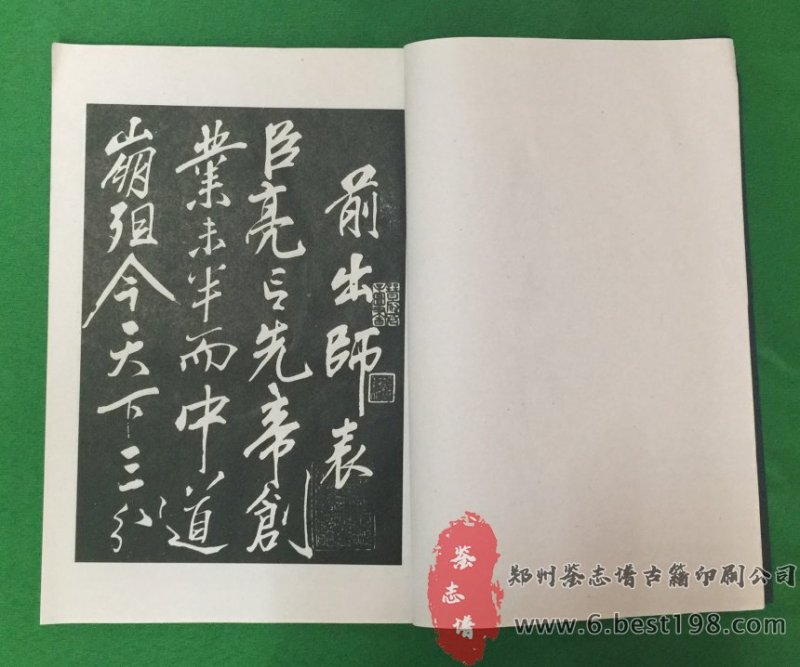 前出師表
臣亮言先帝創
業未半而中道
崩殂今天下三分
鉴志谱
郑州鉴志谱古籍印刷公司
www.6.best198.com